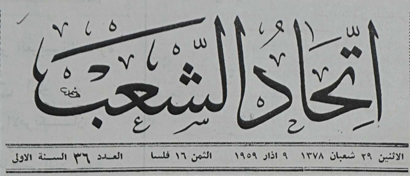 اتِّحَادُ الشَّعب
الاثنين ٢٩ شعبان ١٣٧٨ ٩ اذار ١٩٥٩ الثمن ١٦ فلسا العدد ٣٦ السنة الاولى